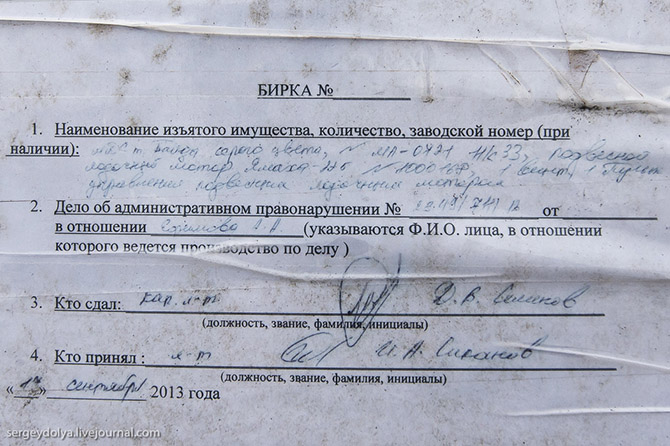 БИРКА №
1. Наименование изъятого имущества, количество, заводской номер (при
наличии): серого цвета, № МА-0421 подвесной
лодочный мотор Ямаха 1 винт, 1 пульт
управления подвесным лодочным мотором
2. Дело об административном правонарушении № от
в отношении (указываются Ф.И.О. лица, в отношении
которого ведется производство по делу )
3. Кто сдал: кап. л-т Д.В.
(должность, звание, фамилия, инициалы)
4. Кто принял : л-т И.А.
(должность, звание, фамилия, инициалы)
«17» сентября 2013 года
sergeydolya.livejournal.com